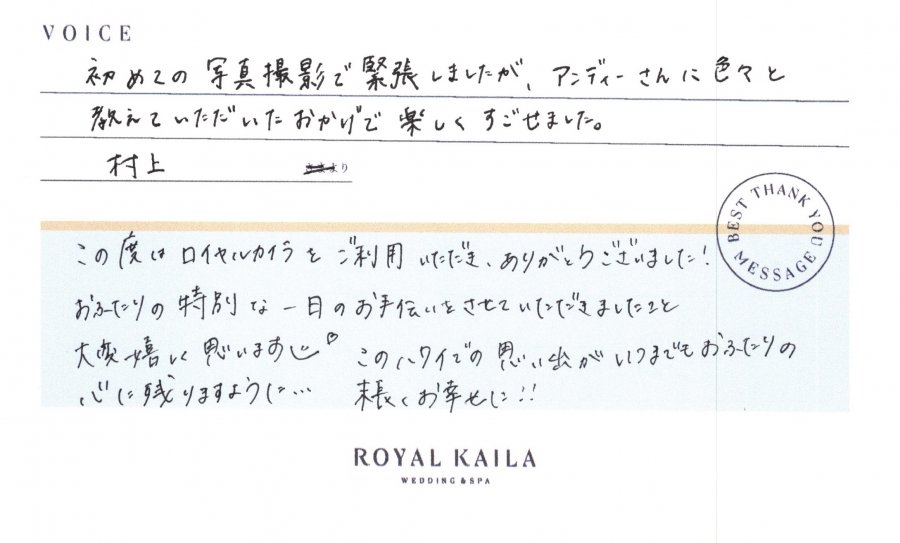 VOICE
初めての写真撮影で緊張しましたが、アンディーさんに色々と
教えていただいたおかげで楽しくすごせました。
村上 より
BEST THANK YOU MESSAGE
この度はロイヤルカイラをご利用いただき、ありがとうございました!
おふたりの特別な一日のお手伝いをさせていただきましたこと
大変嬉しく思います♡ このハワイでの思い出がいつまでもおふたりの
心に残りますように… 末長くお幸せに!!
ROYAL KAILA
WEDDING & SPA